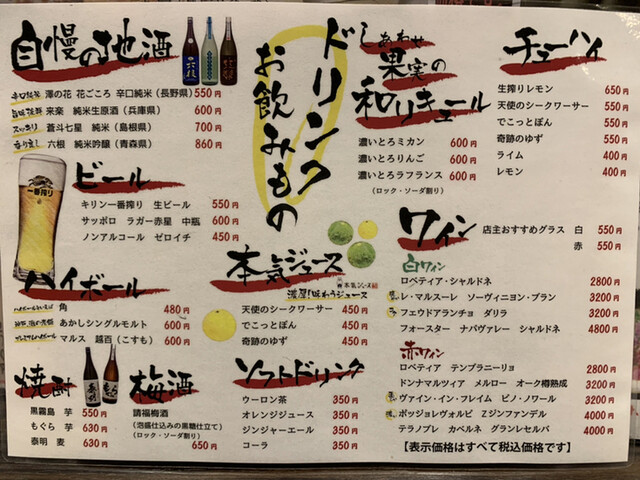 自慢の地酒
辛口純米 澤の花 花ごころ 辛口純米(長野県) 550円
旨味濃醇 来楽 純米生原酒(兵庫県) 600円
スッキリ 蒼斗七星 純米(島根県) 700円
香り良し 六根 純米吟醸(青森県) 860円
ビール
一番搾り
キリン一番搾り 生ビール 550円
サッポロ ラガー赤星 中瓶 600円
ノンアルコール ゼロイチ 450円
ハイボール
ハイボールといえば 角 480円
神戸、酒の老舗 あかしシングルモルト 600円
プレミアムハイボール マルス 越百(こすも) 600円
焼酎
黒霧島 芋 550円
もぐら 芋 630円
泰明 麦 630円
梅酒
請福梅酒
(泡盛仕込みの黒糖仕立て)
(ロック・ソーダ割り) 650円
ドリンク
お飲みもの
本気ジュース
濃厚!味わうジュース
天使のシークワーサー 450円
でこっとぽん 450円
奇跡のゆず 450円
ソフトドリンク
ウーロン茶 350円
オレンジジュース 350円
ジンジャーエール 350円
コーラ 350円
しあわせ
果実の
和リキュール
濃いとろミカン 600円
濃いとろりんご 600円
濃いとろラフランス 600円
(ロック・ソーダ割り)
チューハイ
生搾りレモン 650円
天使のシークワーサー 550円
でこっとぽん 550円
奇跡のゆず 550円
ライム 400円
レモン 400円
ワイン
店主おすすめグラス 白 550円
赤 550円
白ワイン
ロペティア・シャルドネ 2800円
レ・マルスーレ ソーヴィニヨン・ブラン 3200円
フェウドアランチョ ダリラ 3200円
フォースター ナパヴァレー シャルドネ 4800円
赤ワイン
ロペティア テンプラニーリョ 2800円
ドンナマルツィア メルロー オーク樽熟成 3200円
ヴァイン・イン・フレイム ピノ・ノワール 3200円
ポッジョレヴォルピ Zジンファンデル 4000円
テラノブレ カベルネ グランレセルバ 4000円
【表示価格はすべて税込価格です】